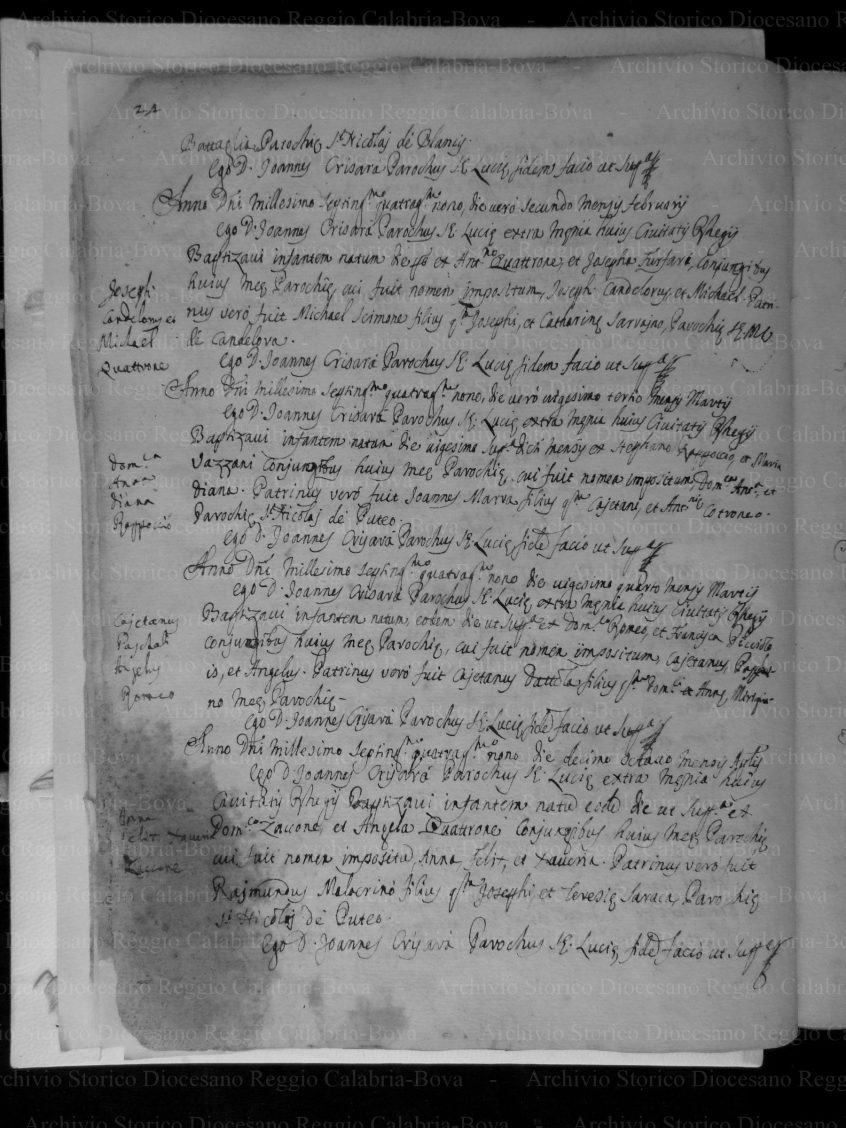 24
Battaglia Parochię S.ti Nicolaj de Blanis.
Ego D. Joannes Crisarà Parochus S.ę Lucię fidem facio ut sup.a
Anno Dñi Millesimo Septing.mo quatrag.mo nono, die verò secundo Mensis februarij
Ego D. Joannes Crisarà Parochus S.ę Lucię extra męnia huius Civitatis Rhegij
Baptizavi infantem natum die et Ant.no Quattrone, et Josepha Surfaro, Conjugibus
huius meę Parochię, cui fuit nomen impositum, Joseph Candelorus, et Michael. Patri-
nus verò fuit Michael Scimone filius q.m Josephi, et Catharinę Sarvajno, Parochię S.ę Mę
de Candelora.
Joseph
Candelorus et
Michael
Quattrone
Ego D. Joannes Crisarà Parochus S.ę Lucię fidem facio ut sup.a
Anno Dñi Millesimo Septing.mo quatrag.mo nono, die verò vigesimo tertio Mensis Martij
Ego D. Joannes Crisarà Parochus S.ę Lucię extra męnia huius Civitatis Rhegij
Baptizavi infantem natam die vigesimo sup.a dicti mensis ex Stephano Rappoccio, et Maria
Vazzani Conjungibus huius meę Parochię, cui fuit nomen impositum Dom.ca Anna, et
Diana. Patrinus verò fuit Joannes Marra filius q.m Cajetani, et Ant.nię Cotroneo.
Parochię S.ti Nicolaj de Puteo.
Dom.ca
Anna
Diana
Rappoccio
Ego D. Joannes Crisarà Parochus S.ę Lucię fidẽ facio ut sup.a
Anno Dñi Millesimo Septing.mo quatrag.mo nono die vigesimo quarto Mensis Martij
Ego D. Joannes Crisarà Parochus S.ę Lucię extra męnia huius Civitatis Rhegij
Baptizavi infantem natum eodem die ut sup.a ex Dom.co Romeo, et Francisca Piccolo
Conjungibus huius meę Parochię, cui fuit nomen impositum, Cajetanus, Paschal-
is, et Angelus. Patrinus verò fuit Cajetanus Dattola filius q.m Dom.ci et Annę
no meę Parochię
Cajetanus
Paschalis
Angelus
Romeo
Ego D. Joannes Crisarà Parochus S.ę Lucię fidẽ facio ut sup.a
Anno Dñi Millesimo Septing.mo quatrag.mo nono die decimo octavo Mensis Aplis
Ego D. Joannes Crisarà Parochus S.ę Lucię extra męnia huius
Civitatis Rhegij Baptizavi infantem natã eodẽ die ut sup.a ex
Dom.co Zavone, et Angela Quattrone Conjungibus huius meę Parochię
cui fuit nomen impositũ, Anna, Felix, et Xaveria. Patrinus verò fuit
Rajmundus Malacrinò filius q.m Josephi, et Teresię Saraca, Parochię
S.ti Nicolaj de Puteo.
Anna
Felix Xaveria
Zavone
Ego D. Joannes Crisarà Parochus S.ę Lucię fidẽ facio ut sup.a
Archivio Storico Diocesano Reggio Calabria-Bova